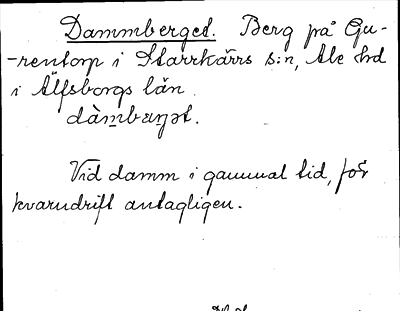 Dammberget. Berg på Gu-
-rentorp i Starrkärrs s:n, Ale hd
i Älfsborgs län.
dàmbær̨ət.
Vid damm i gammal tid, för
kvarndrift antagligen.